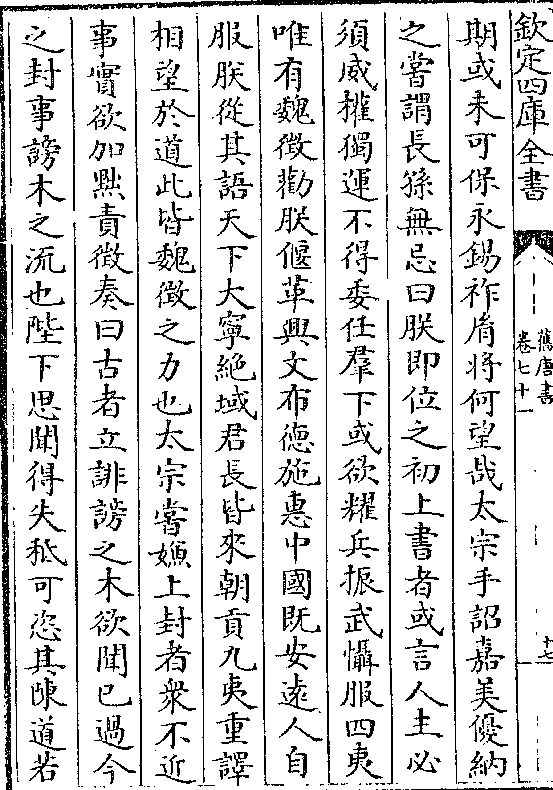 欽定四庫全書
舊唐書
卷七十一
十七
期或未可保永錫祚胤將何望哉太宗手詔嘉美優納
之嘗謂長孫無忌曰朕即位之初上書者或言人主必
須威權獨運不得委任羣下或欲耀兵振武懾服四夷
唯有魏徵勸朕偃革興文布德施惠中國既安遠人自
服朕從其語天下大寧絕域君長皆來朝貢九夷重譯
相望於道此皆魏徵之力也太宗嘗嫌上封者衆不近
事實欲加黜責徵奏曰古者立誹謗之木欲聞已過今
之封事謗木之流也陛下思聞得失秪可恣其陳道若